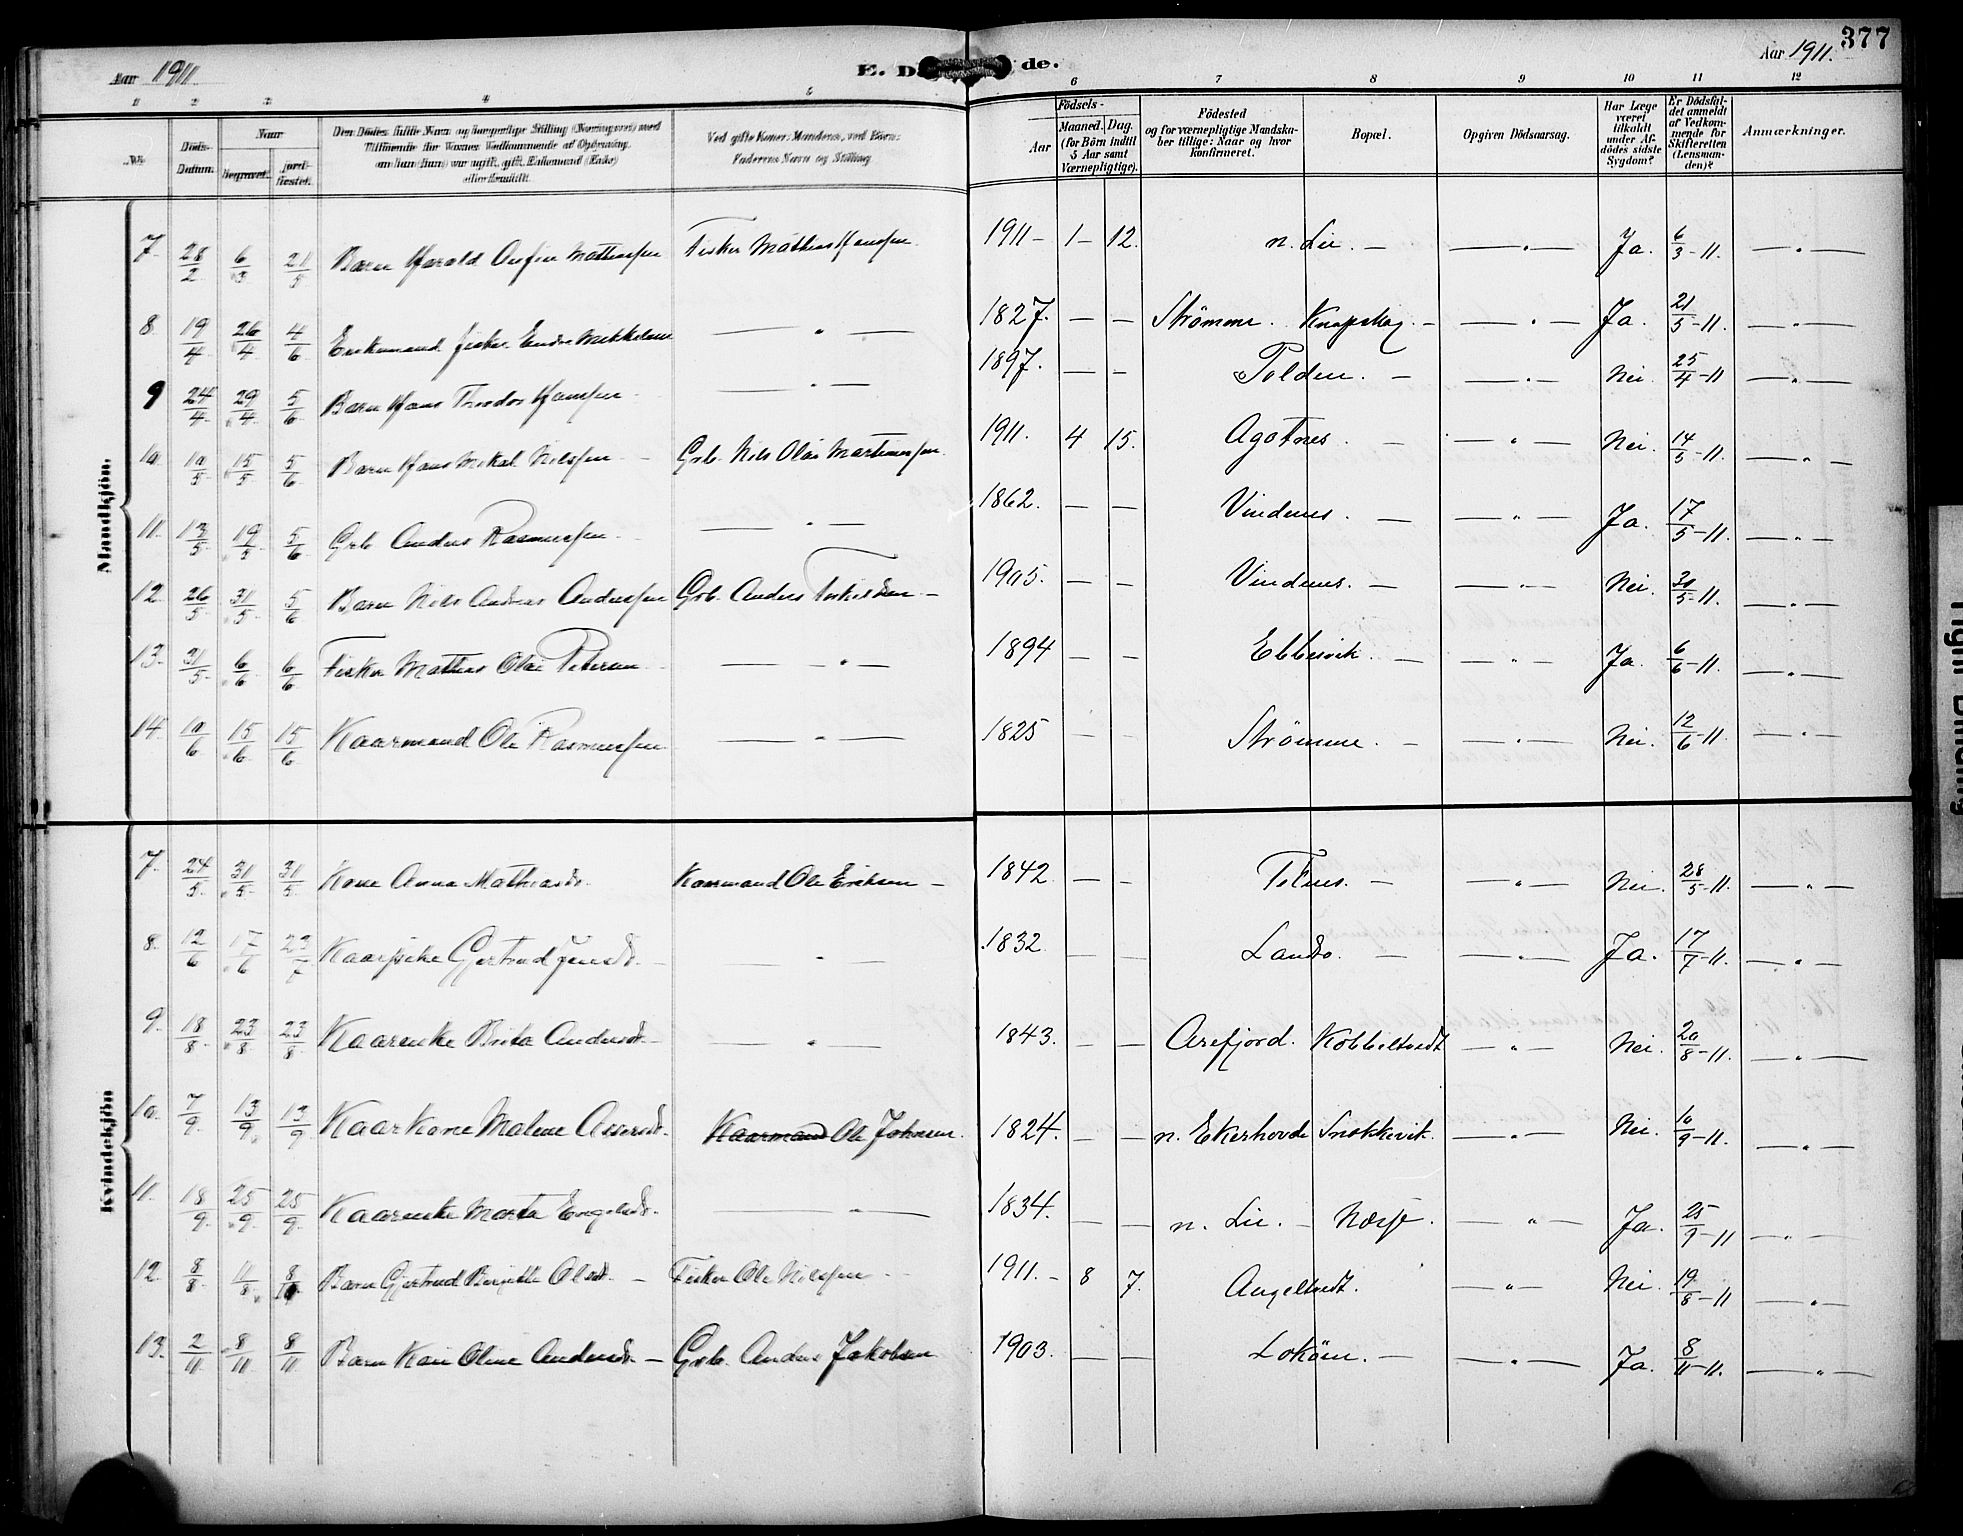 Aar 1911
E. D de.
Aar 1911.
377
1 2 3 4 5 6 7 8 9 10 11 12
No.
Døds-Datum.
Naar
begravet.
jordfæstet.
Fødsels-
Aar
Maaned. Dag.
(for Børn indtil 5 Aar samt Værnepligtige).
Fødested
og for værnepligtige Mandskaber tillige: Naar og hvor konfirmeret.
Bopæl.
Opgiven Dødsaarsag.
Har Læge været tilkaldt under Afdødes sidste Sygdom?
Er Dødsfaldet anmeldt af Vedkommende for Skifteretten (Lensmanden)?
Anmærkninger.
Mandkjön.
7. 28/2 6/3 21/5 Barn Harald Mathiassen Fisker Mathias Hansen. 1911 – 1 – 12. n. Lie. – – " – Ja. 6/3 – 11. – " –
8. 19/4 26/4 4/6 Enkemand fisker Endre Mikkelsen – " – 1827. – – Strømme. Knapskog. – – " – Ja. 21/5 – 11. – " –
9 24/4 29/4 5/6 Barn Hans Theodor Hansen – " – 1897. – – Tolden. – – " – Nei. 25/4 – 11 – " –
10. 10/5 15/5 5/6 Barn Hans Mikal Nilssen – Grb. Nils Olai Martinussen. 1911. 4 15. Agotnes. – – " – Nei. 14/5 – 11. – " –
11. 13/5 19/5 5/6 Grb Anders Rasmussen – " – 1862. – – Vindenes. – – " – Ja. 17/5 – 11. – " –
12. 26/5 31/5 5/6 Barn Nils Andreas Anderssen Grb. Anders – 1905. – – Vindenes. – – " – Nei. 30/5 – 11. – " –
13. 31/5 6/6 6/6 Fisker Mathias Olai Petersen – " – 1894 – – Ebbesvik. – – " – Ja. 6/6 – 11. – " –
14. 10/6 15/6 15/6 Kaarmand Ole Rasmussen – " – 1825 – – Strømme. – – " – Nei. 12/6 – 11. – " –
Kvindekjön
7. 24/5 31/5 31/5 Kone Anna Mathiasdr. Kaarmand Ole Eriksen – 1842. – – Telnes. – – " – Nei. 28/5 – 11. – " –
8. 12/6 17/6 23/7 Kaarpike Gjertrud Jensdr. – " – 1832 – – Landro. – – " – Ja. 17/7 – 11. – " –
9. 18/8 23/8 23/8 Kaarenke Brita Andersdr – " – 1843. – – Arefjord. Kobbeltvedt – " – Nei. 20/8 – 11. – " –
10. 7/9 13/9 13/9 Kaarkone Malene Assersdr. Kaarmand Ole Johnsen. 1824. – – n. Ekerhovde Snekkevik. – " – Nei. 10/9 – 11. – " –
11. 18/9 25/9 25/9 Kaarenke Marta Engelsdr. – " – 1834. – – n. Lie. – Næsje. – " – Ja. 25/9 – 11 – " –
12. 8/8 11/8 Barn Gjertrud Olsdr. – Fisker Ole Nilssen 1911. – 8 7. Angeltvedt. – " – Nei. 19/8 – 11 – " –
13. 2/11 8/11 8/11 Barn Kari Oline Andersdr – Grb. Anders Jakobsen 1903. – – Lokøen. – – " – Ja. 8/11 – 11. – " –